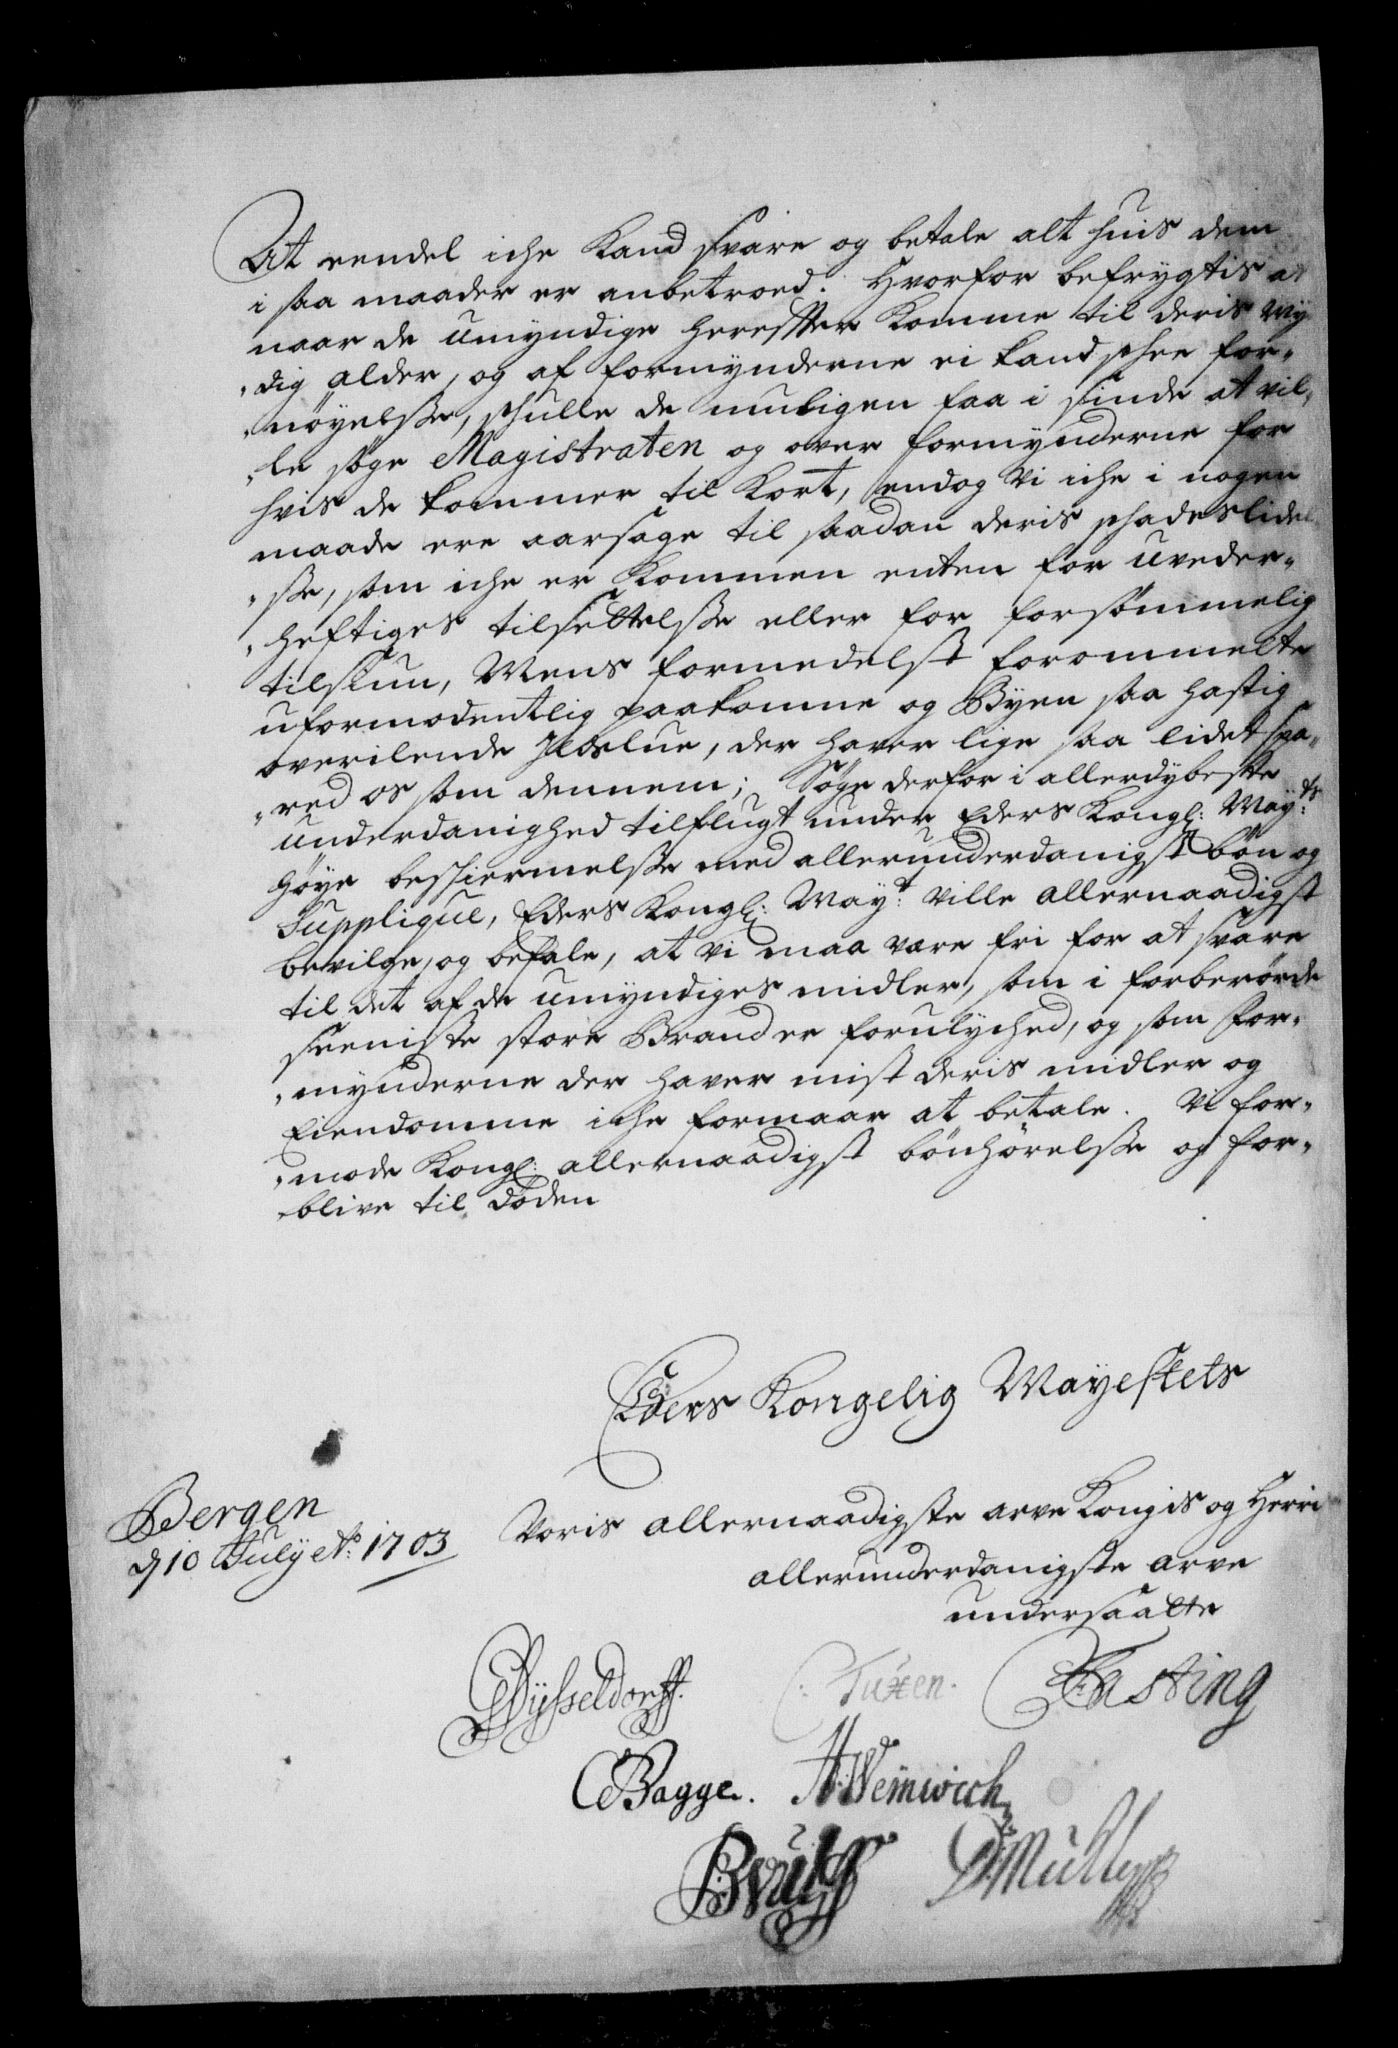 At eendel iche Kand svare og betale alt huis dem
i saa maader er anbetroed. Hvorfor befrygtis at
naar de umyndige herefter Komme til deris My¬
„dig alder, og af formynderne ei kand schee for„
„nøyelsse, schulle de muligen faa i sinde at vil„
„le søge Magistraten og over formynderne for
hvis de kommer til Kort, endog Vi iche i nogen
maade ere aarsage til saadan deris schadeslidel
„sse, som iche er Kommen enten for uveder„
„heftiges tilsettelsse eller for forsømmelig
tilsiun, Mens formedelst forommelte
uformodentlig paakomne og Byen saa hastig
overilende Ildslue, der haver lige saa lidet spa„
„red os som dennem; Søge derfor i allerdybeste
underdanighed tilflugt under Eders Kongl: May:ts
høye beskiermelsse med allerunderdanigst bøn og
Supplique, Eders Kongl: May:t ville allernaadigst
bevilge, og befale, at vi maa være fri for at svare
til det af de umyndiges midler, som i forberørde
seeniste store Brand er forulyched, og som for„
„mynderne der haver mist deris midler og
Eiendomme iche formaar at betale. Vi for„
„mode Kongl: allernaadigst bønhørelsse og for„
„blive til døden
Eders Kongelig Mayestets
Bergen
d 10 July Ao: 1703
Voris allernaadigste arve Kongis og Herris
allerunderdanigste arve
undersaatte
Dysseldorff.
C. Tuxen.
Fasting
CBagge.
HWeinwich
DMüller